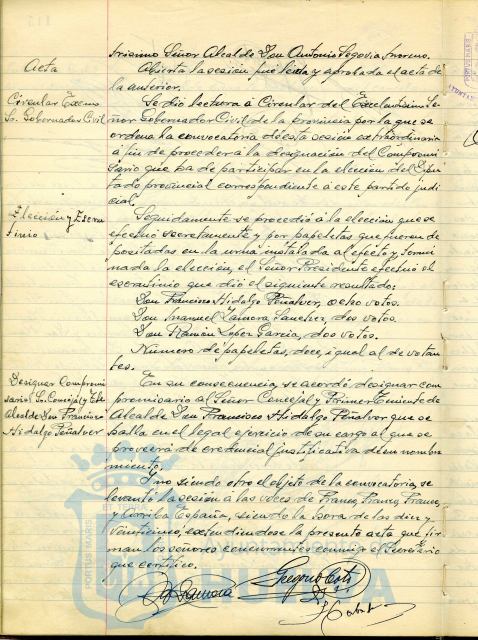 trísimo Señor Alcalde Don Antonio Segovia Moreno.
Acta
Abierta la sesion fué leida y aprobada el acta de
la anterior.
Circular Excmo
Sr. Gobernador Civil
Se dió lectura á Circular del Excelentísimo Se-
ñor Gobernador Civil de la Provincia por la que se
ordena la convocatoria de esta sesión extraordinaria
á fin de proceder á la designación del Compromi-
sario que ha de participar en la elección del Dipu-
tado provincial correspondiente á este partido judi-
cial.
Elección y Escru-
tinio
Seguidamente se procedió á la elección que se
efectuó secretamente y por papeletas que fueron de-
positadas en la urna instalada al efecto y termi-
nada la elección, el Señor Presidente efectuó el
escrutinio que dió el siguiente resultado:
Don Francisco Hidalgo Peñalver, ocho votos.
Don Manuel Zamora Sanchez, dos votos.
Don Ramón Lopez Garcia, dos votos.
Número de papeletas, doce, igual al de votan-
tes.
Designar Compromi-
sario Sr. Concejal y Tte
Alcalde Don Francisco
Hidalgo Peñalver
En su consecuencia, se acordó designar com-
promisario al Señor Concejal y Primer Teniente de
Alcalde Don Francisco Hidalgo Peñalver que se
halla en el legal ejercicio de su cargo al que se
proveerá de credencial justificativa de su nombra-
miento.
Y no siendo otro el objeto de la convocatoria, se
levantó la sesión á las voces de Franco, Franco, Franco
y Arriba España, siendo la hora de las diez y
veinticinco, extendiendose la presente acta que fir-
man los señores concurrentes conmigo el Secretario
que certifico.
PORTUS MARIS
ET TERRAE